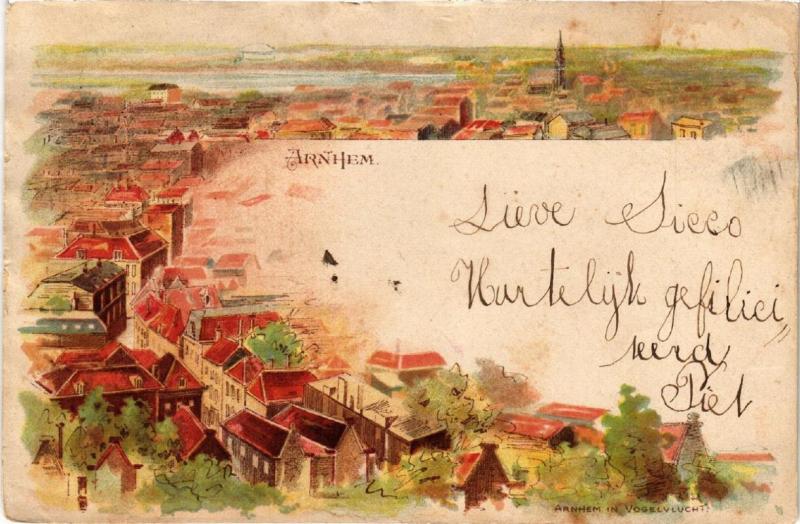 ARNHEM.
Lieve Sicco
Hartelijk gefilici„
teerd
Piet
ARNHEM IN VOGELVLUCHT.